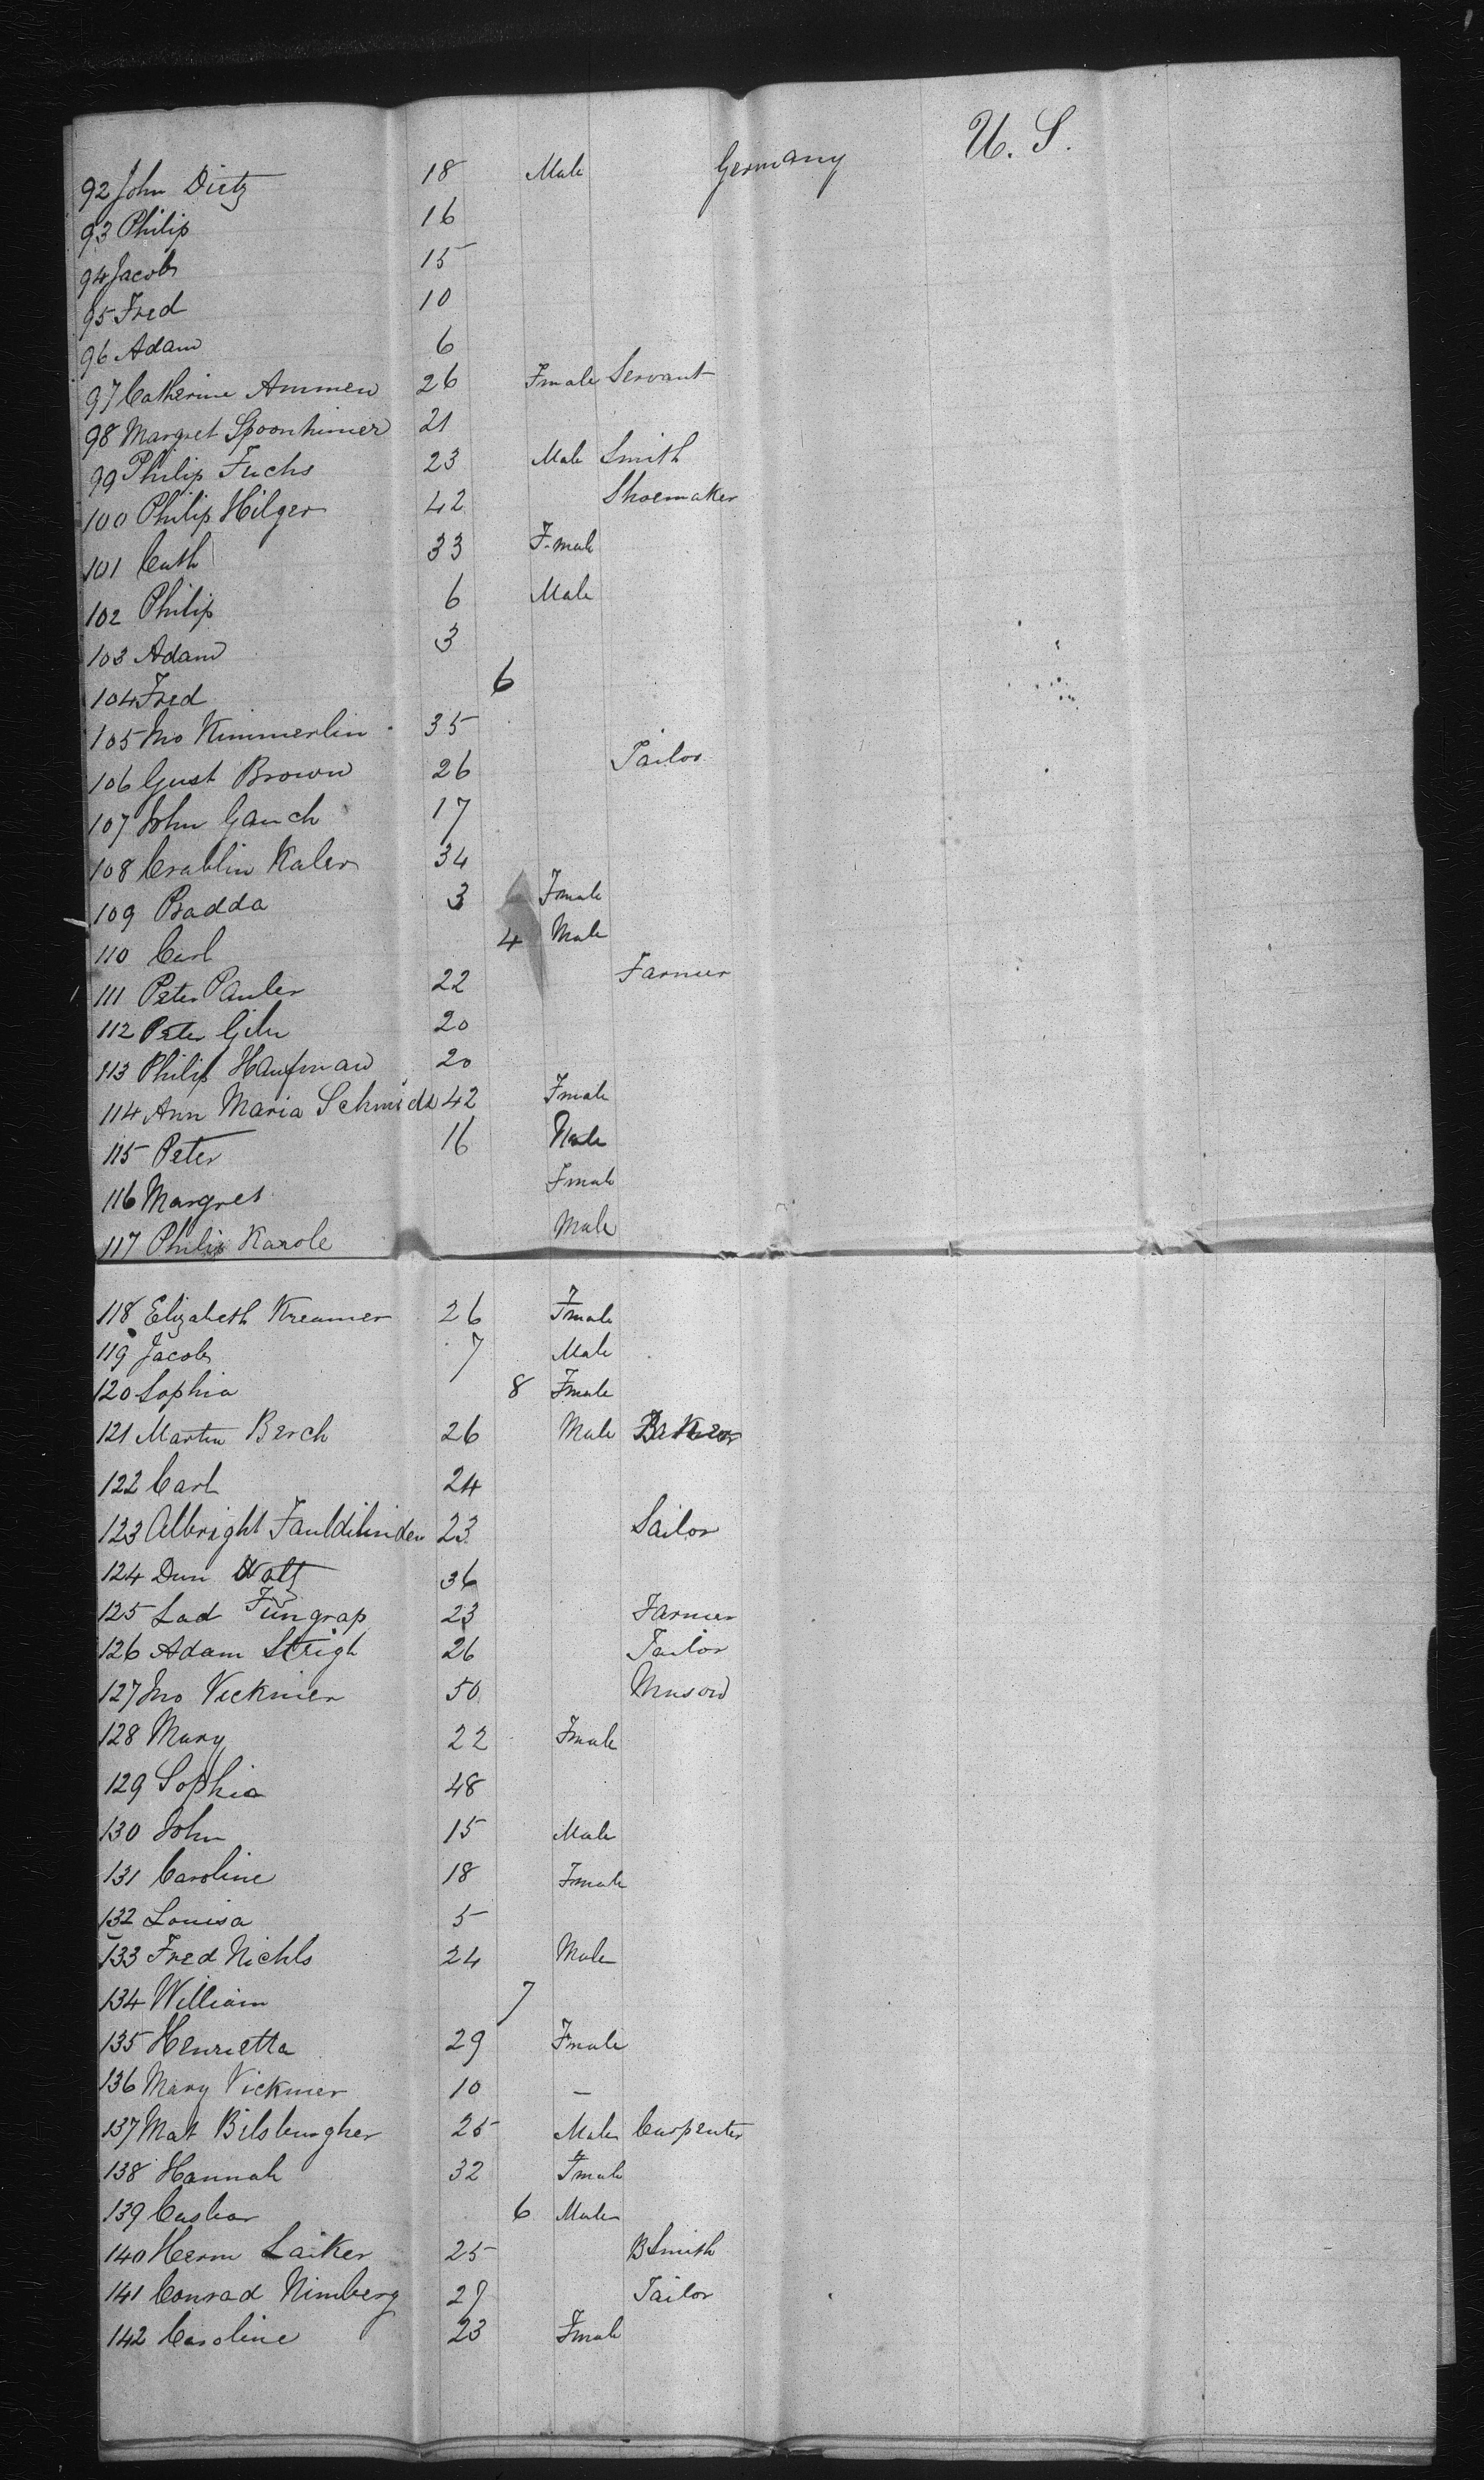 92 John Dietz 18 Male Germany U. S.
93 Philip 16
94 Jacob 15
95 Fred 10
96 Adam 6
97 Catherine Ammen 26 Fmale Servant
98 Margret Spoonhimer 21
99 Philip Fuchs 23 Male Smith
100 Philip Hilger 42 Shoemaker
101 Cath 33 Fmale
102 Philip 6 Male
103 Adam 3
104 Fred 6
105 Jno Kimmerlin 35
106 Gust Brown 26 Tailor
107 John Gauch 17
108 Kaler 34
109 Badda 3 Fmale
110 Carl 4 Male
111 Peter Pauler 22 Farmer
112 Peter 20
113 Philip Haufman 20
114 Ann Maria Schmidt 42 Fmale
115 Peter 16 Male
116 Margret Fmale
117 Philip Karole Male
118 Elizabeth Kreamer 26 Fmale
119 Jacob 7 Male
120 Sophia 8 Fmale
121 Martin Berch 26 Male Baker
122 Carl 24
123 Albright 23 Sailor
124 Dun Woltz 36
125 Lad Fungrap 23 Farmer
126 Adam Streigh 26 Tailor
127 Jno Vickmer 50 Mason
128 Mary 22 Fmale
129 Sophia 48
130 John 15 Male
131 Caroline 18 Fmale
132 Louisa 5
133 Fred Nichls 24 Male
134 William 7
135 Henrietta 29 Fmale
136 Mary Vickmer 10 –
137 Mat Bilsburgher 25 Male Carpenter
138 Hannah 32 Fmale
139 Casbar 6 Male
140 Herm Laiker 25 BSmith
141 Conrad Nimberg 27 Tailor
142 Caroline 23 Fmale